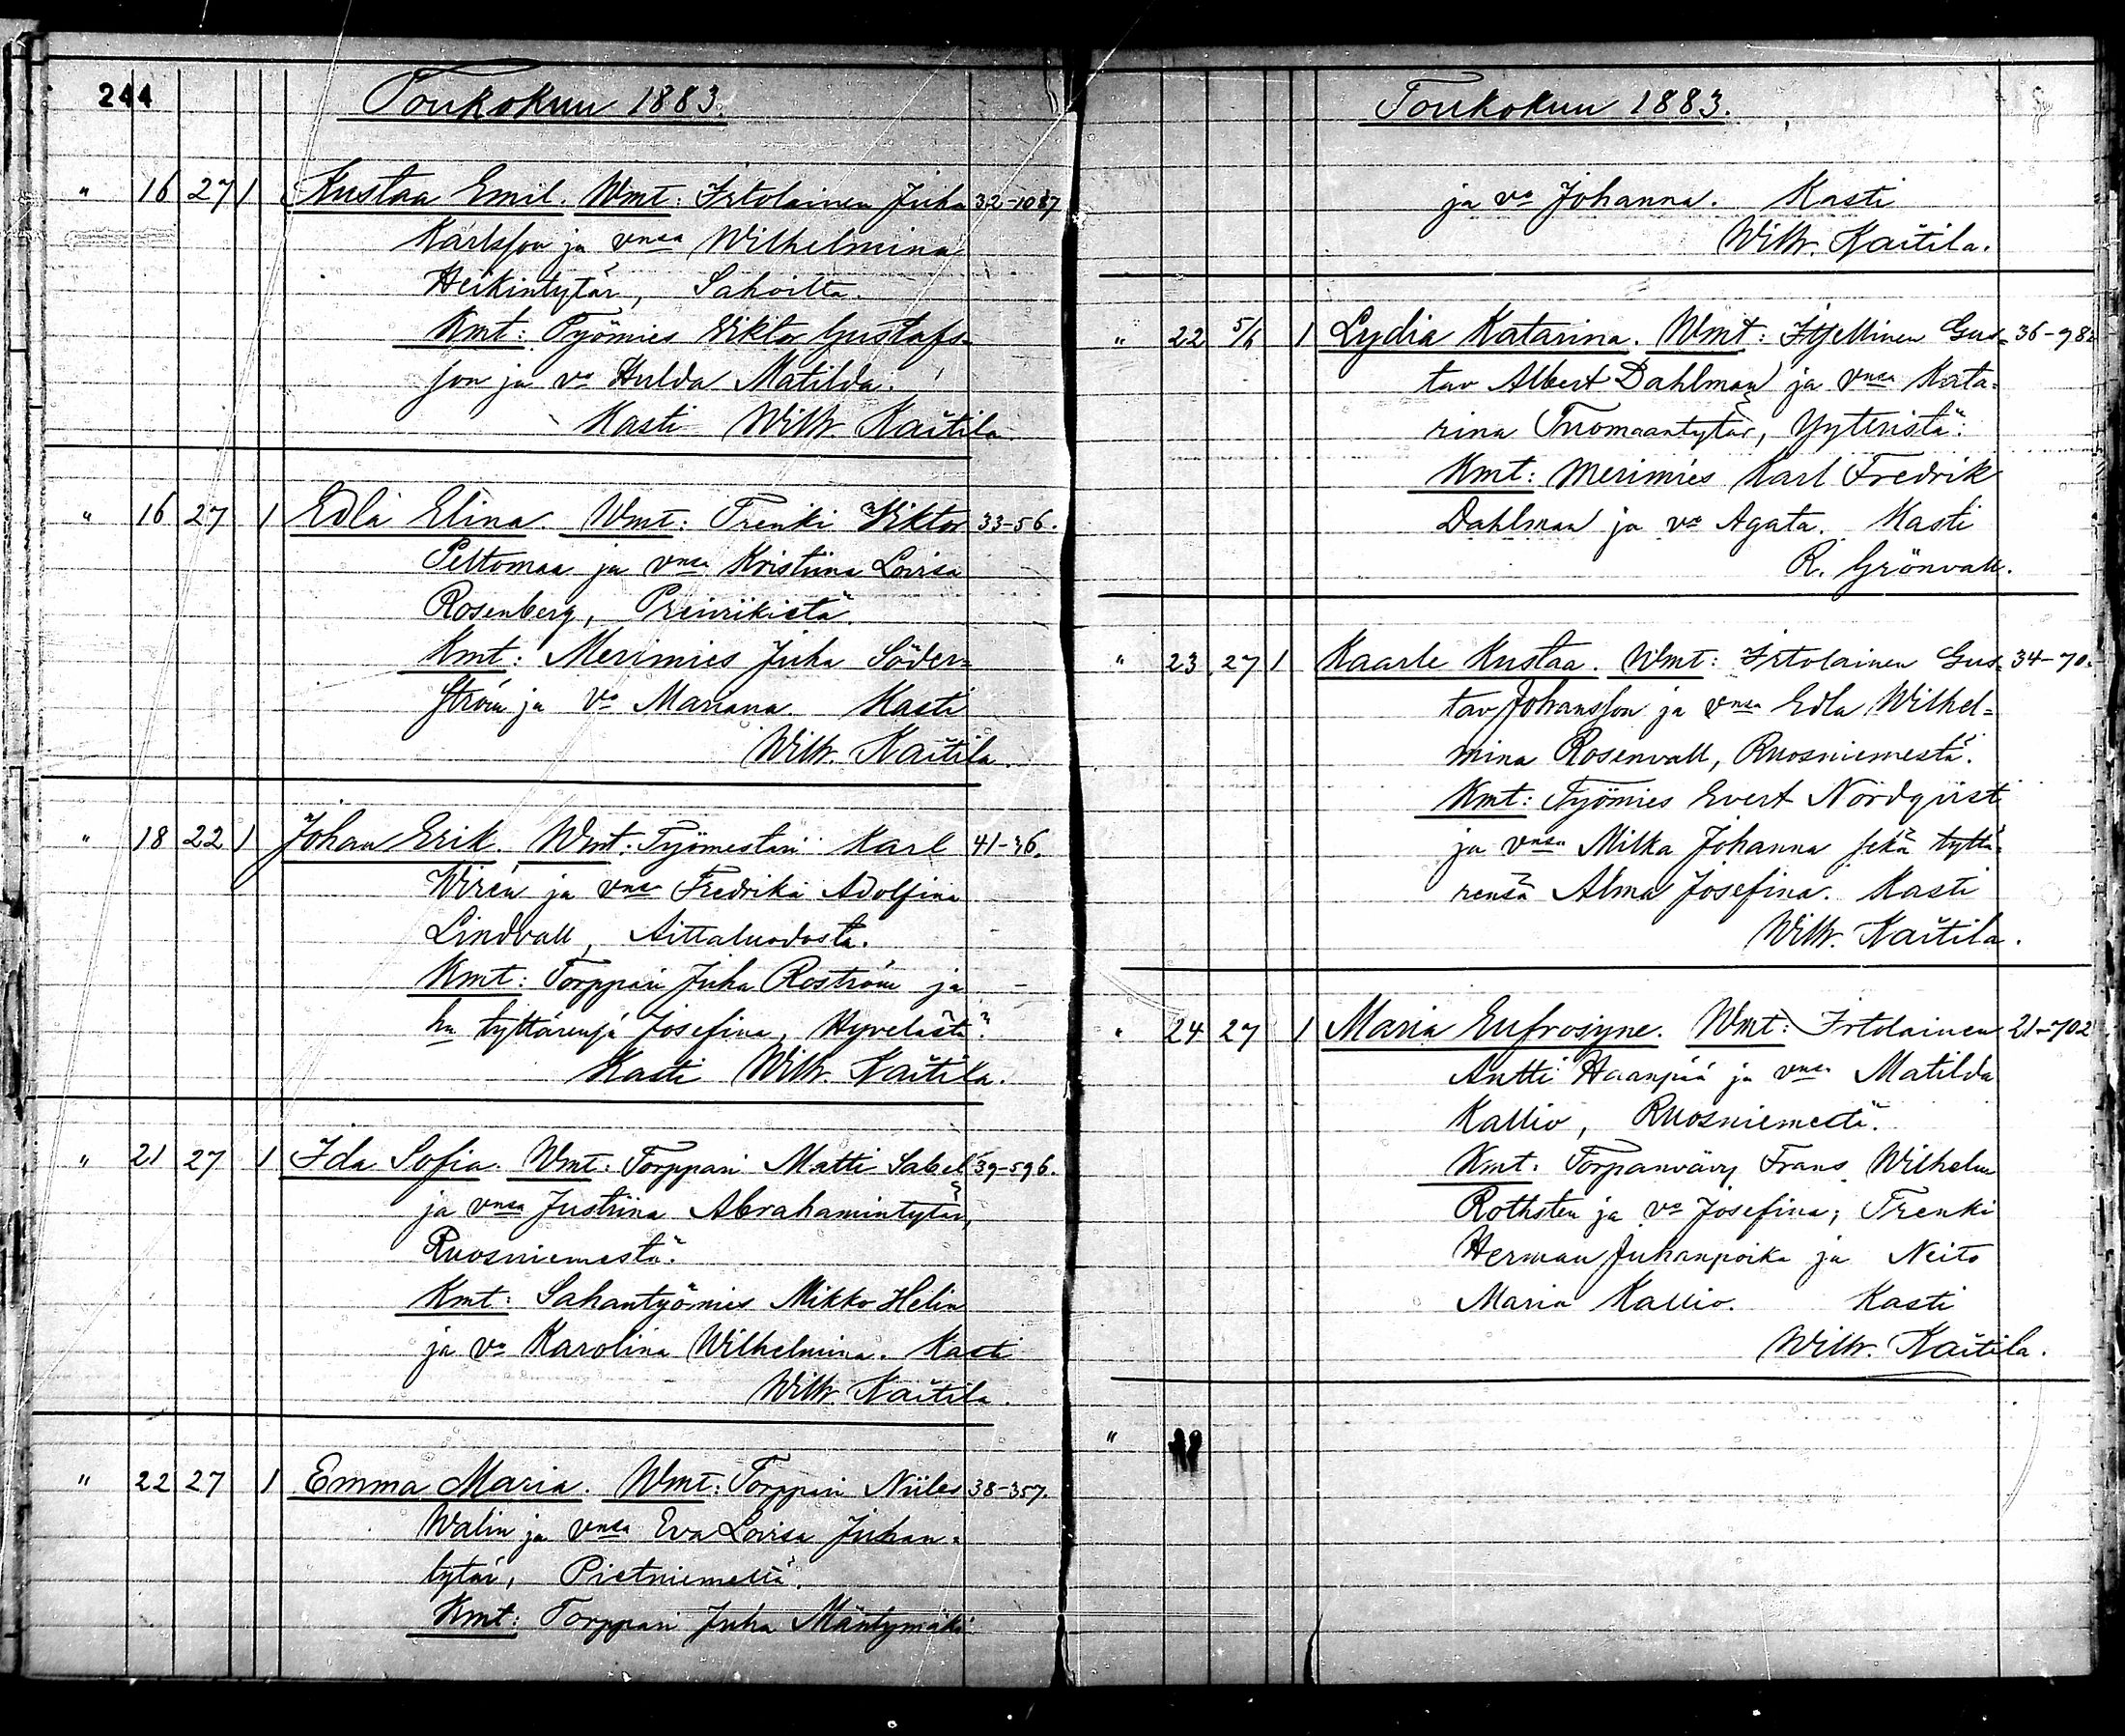 244
Toukokuu 1883.
" 16 27 1 Kustaa Emil. Wmt: Irtolainen Juha 32-1087
Karlsson ja vnsa Wilhelmina
Heikintytär, Sahoilta.
Kmt: Työmies Viktor Gustafs-
son ja vo Hulda Matilda.
Kasti Wilh. Kaitila
" 16 27 1 Edla Elina. Wmt: Trenki Viktor 33-56.
Peltomaa ja vnsa Kristiina Lovisa
Rosenberg, Preiviikistä.
Kmt: Merimies Juha Söder=
ström ja vo Mariana. Kasti
Wilh. Kaitila.
" 18 22 1 Johan Erik. Wmt: Työmestari Karl 41-36.
Wirén ja vnsa Fredrika Adolfina
Lindvall, Aittaluodosta.
Kmt: Torppari Juha Roström ja
hn tyttärensä Josefina, Hyvelästä.
Kasti Wilh. Kaitila.
" 21 27 1 Ida Sofia. Wmt: Torppari Matti Saliel 39-596.
ja vnsa Justiina Abrahamintytär,
Ruosniemestä.
Kmt: Sahantyömies Mikko Helin
ja vo Karolina Wilhelmina. Kasti
Wilh. Kaitila.
" 22 27 1 Emma Maria. Wmt: Torppari Niiles 38-357.
Walin ja vnsa Eva Lovisa Juhan=
tytär, Pietniemeltä.
Kmt: Torppari Juha Mäntymäki
Toukokuu 1883.
ja vo Johanna. Kasti
Wilh. Kaitila.
" 22 5/6 1 Lydia Katarina. Wmt: Itsellinen Gus= 36-982
tav Albert Dahlman ja vnsa Kata=
rina Tuomaantytär, Yyteristä.
Kmt: Merimies Karl Fredrik
Dahlman ja vo Agata. Kasti
R. Grönvall.
" 23 27 1 Kaarle Kustaa. Wmt: Irtolainen Gus- 34-70.
tav Johansson ja vnsa Edla Wilhel=
mina Rosenvall, Ruosniemestä.
Kmt: Työmies Evert Nordqvist
ja vnsa Milka Johanna sekä tyttä=
rensä Alma Josefina. Kasti
Wilh. Kaitila.
" 24 27 1 Maria Eufrosyne. Wmt: Irtolainen 21-702
Antti Haanpää ja vnsa Matilda
Kallio, Ruosniemestä.
Kmt: Torpanvävy Frans Wilhelm
Rothsten ja vo Josefina; Trenki
Herman Juhanpoika ja Neito
Maria Kallio. Kasti
Wilh. Kaitila.
"